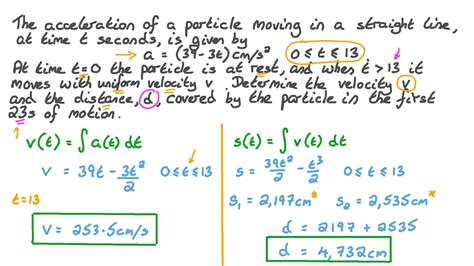 The acceleration of a particle moving in a straight line,
at time t seconds, is given by
a = (39-3t) cm/s² 0 ≤ t ≤ 13
At time t=0 the particle is at rest, and when t > 13 it
moves with uniform velocity v. Determine the velocity v
and the distance, d, covered by the particle in the first
23s of motion.
v(t) = ∫ a(t) dt
v = 39t - 3t²/2 0 ≤ t ≤ 13
t=13
v = 253.5 cm/s
s(t) = ∫ v(t) dt
s = 39t²/2 - t³/2 0 ≤ t ≤ 13
s₁ = 2,197cm* s₂ = 2,535cm*
d = 2197 + 2535
d = 4,732cm